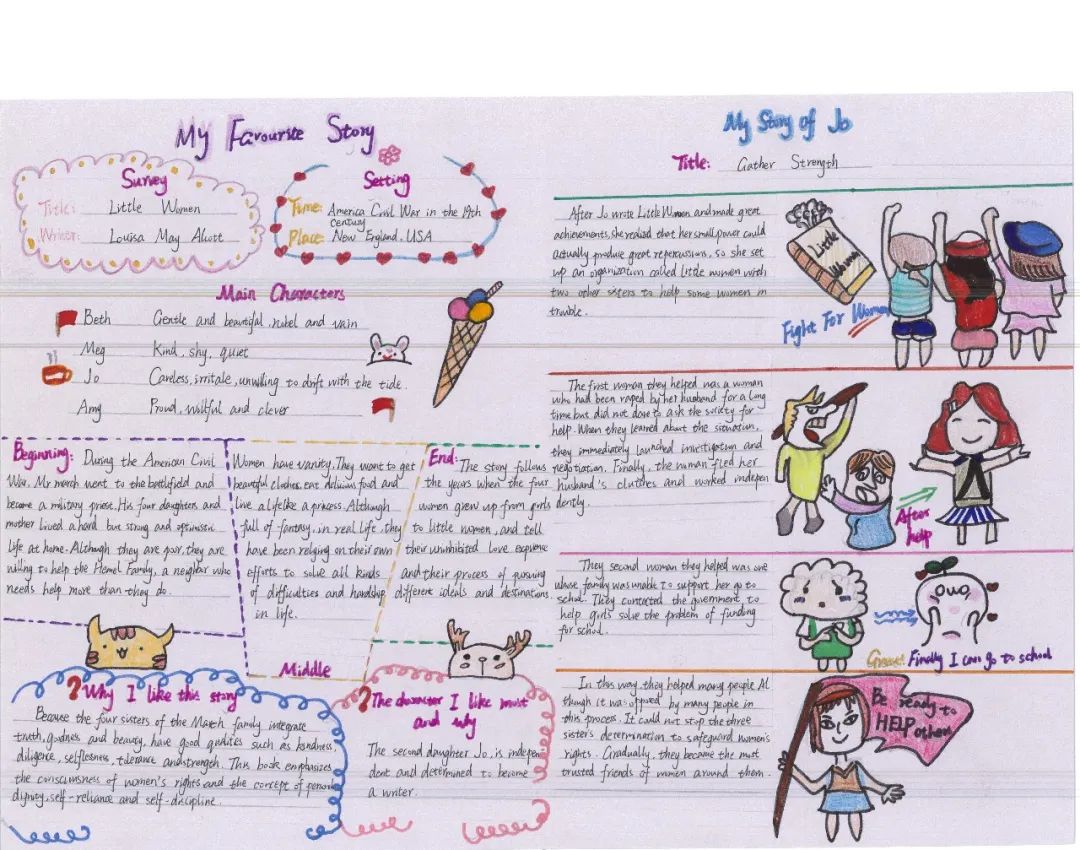 My Favourite Story
Survey
Title: Little Women
Writer: Louisa May Alcott
Setting
Time: America Civil War in the 19th
century
Place: New England, USA
Main Characters
Beth Gentle and beautiful, nobel and vain
Meg Kind, shy, quiet
Jo Careless, irritale, unwilling to drift with the tide.
Amy Proud, willful and clever
Beginning: During the American Civil
War, Mr march went to the battlefield and
became a military priese. His four daughters and
mother lived a hard but strong and optimistic
life at home. Although they are poor, they are
willing to help the Hemel Family, a neighbor who
needs help more than they do.
Women have vanity. They want to get
beautiful clothes, eat delicious food and
live a life like a princess. Although
full of fantasy, in real life, they
have been relying on their own
efforts to solve all kinds
of difficulties and hardship
in life.
Middle
End: The story follows
the years when the four
women grew up from girls
to little women, and tell
their uninhibited love
and their process of pursuing
different ideals and destinations.
? Why I like this story
Because the four sisters of the March family integrate
truth, goodness and beauty, have good qualities such as kindness,
diligence, selflessness, tolerance and strength. This book emphasizes
the consciousness of women's rights and the concept of
dignity, self-reliance and self-discipline.
? The character I like most
and why
The second daughter Jo, is indepen
dent and determined to become
a writer.
My Story of Jo
Title: Gather Strength
After Jo wrote Little Women and made great
achievements, she realized that her small power could
actually produce great repercussions, so she set
up an organization called little women with
two other sisters to help some women in
trouble.
Little
Women
Fight For Women
The first woman they helped was a woman
who had been raped by her husband for a long
time but did not dare to ask the society for
help. When they learned about the situation,
they immediately launched investigation and
negotiation. Finally, the woman fled her
husband's clutches and worked indepen
dently.
After
help
They second woman they helped was one
whose family was unable to support her go to
school. They contacted the government, to
help girls solve the problem of funding
for school.
Great! Finally I can go to school
In this way, they helped many people Al
though it was opposed by many people in
this process. It could not stop the three
sister's determination to safeguard women's
rights. Gradually, they became the most
trusted friends of women around them.
Be ready to
HELP others